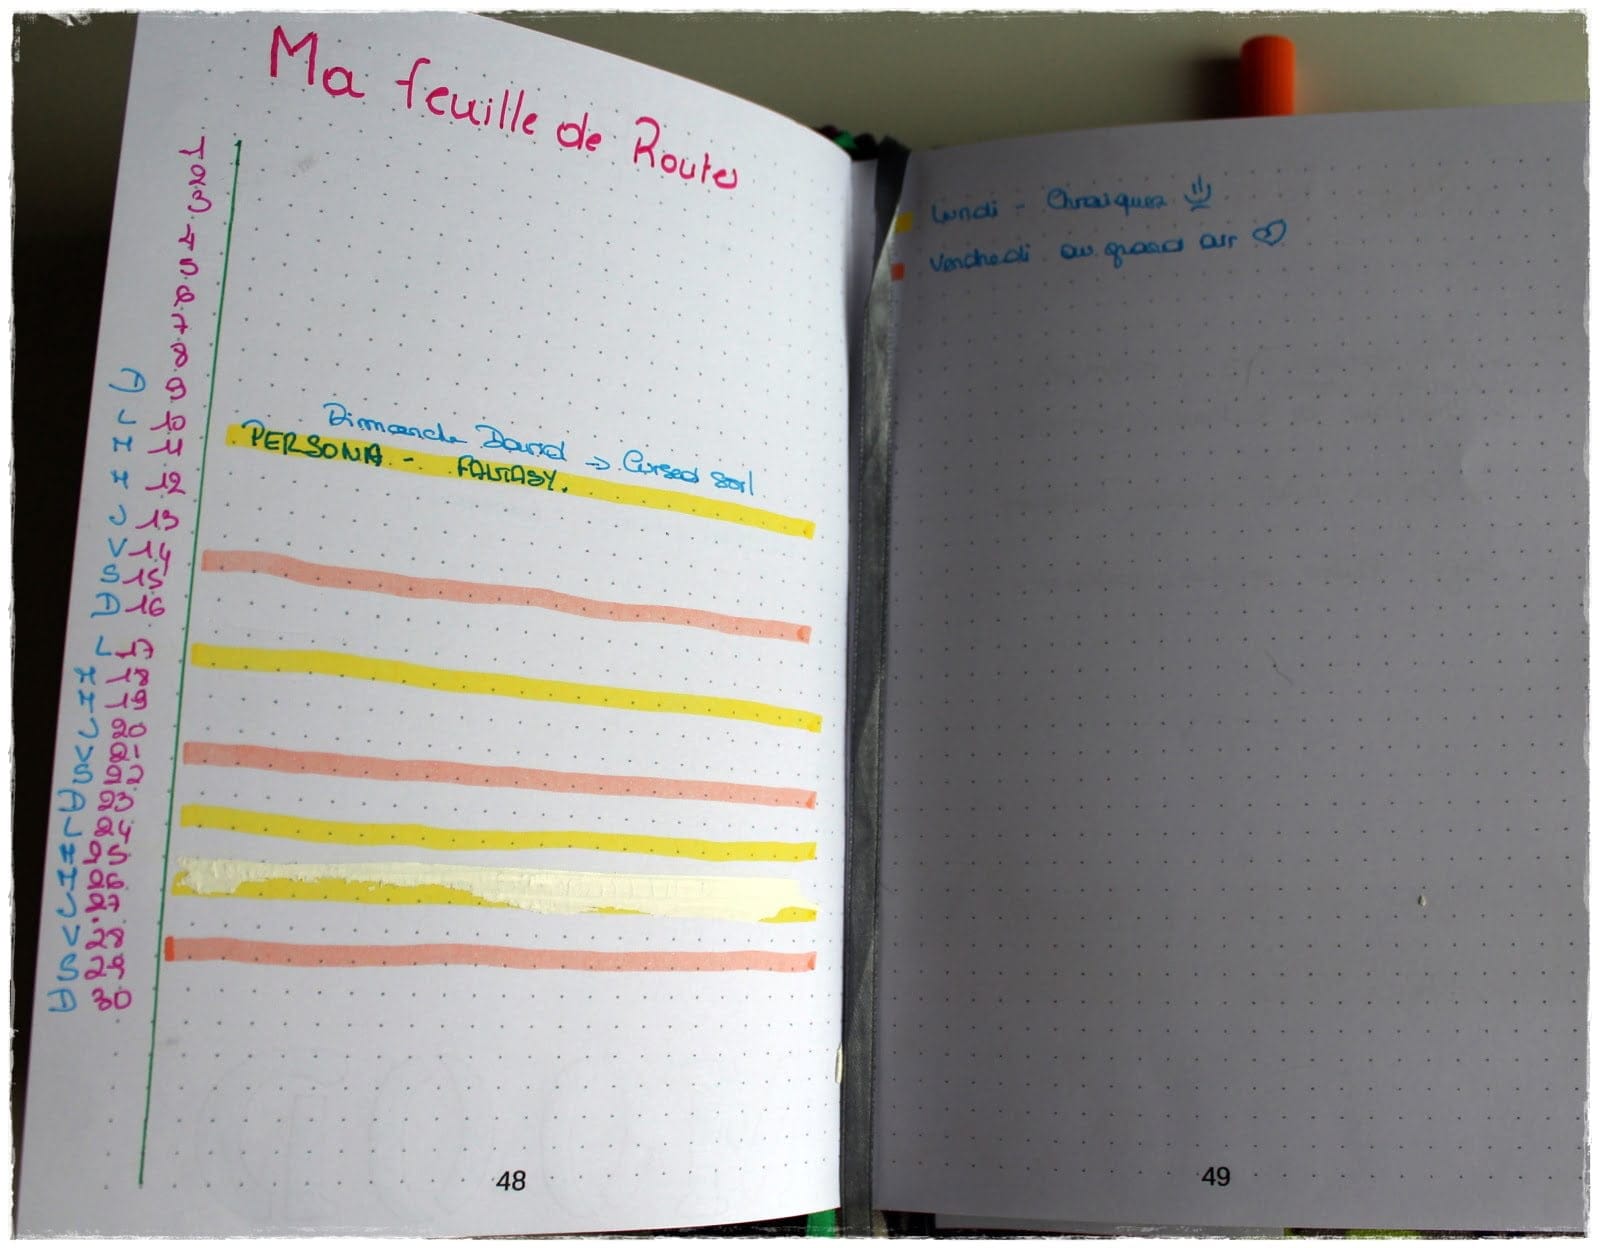 Ma feuille de Route
1
2
3
4
5
6
7
8
A 9
L 10
11
12
J 13
V 14
S 15
A 16
L 17
18
19
J 20
V 21
S 22
A 23
L 24
25
26
J 27
V 28
S 29
A 30
Dimanche David → Cursed
PERSONA - FANTASY.
48
Lundi - Chroniques
Vendredi au grand air
49